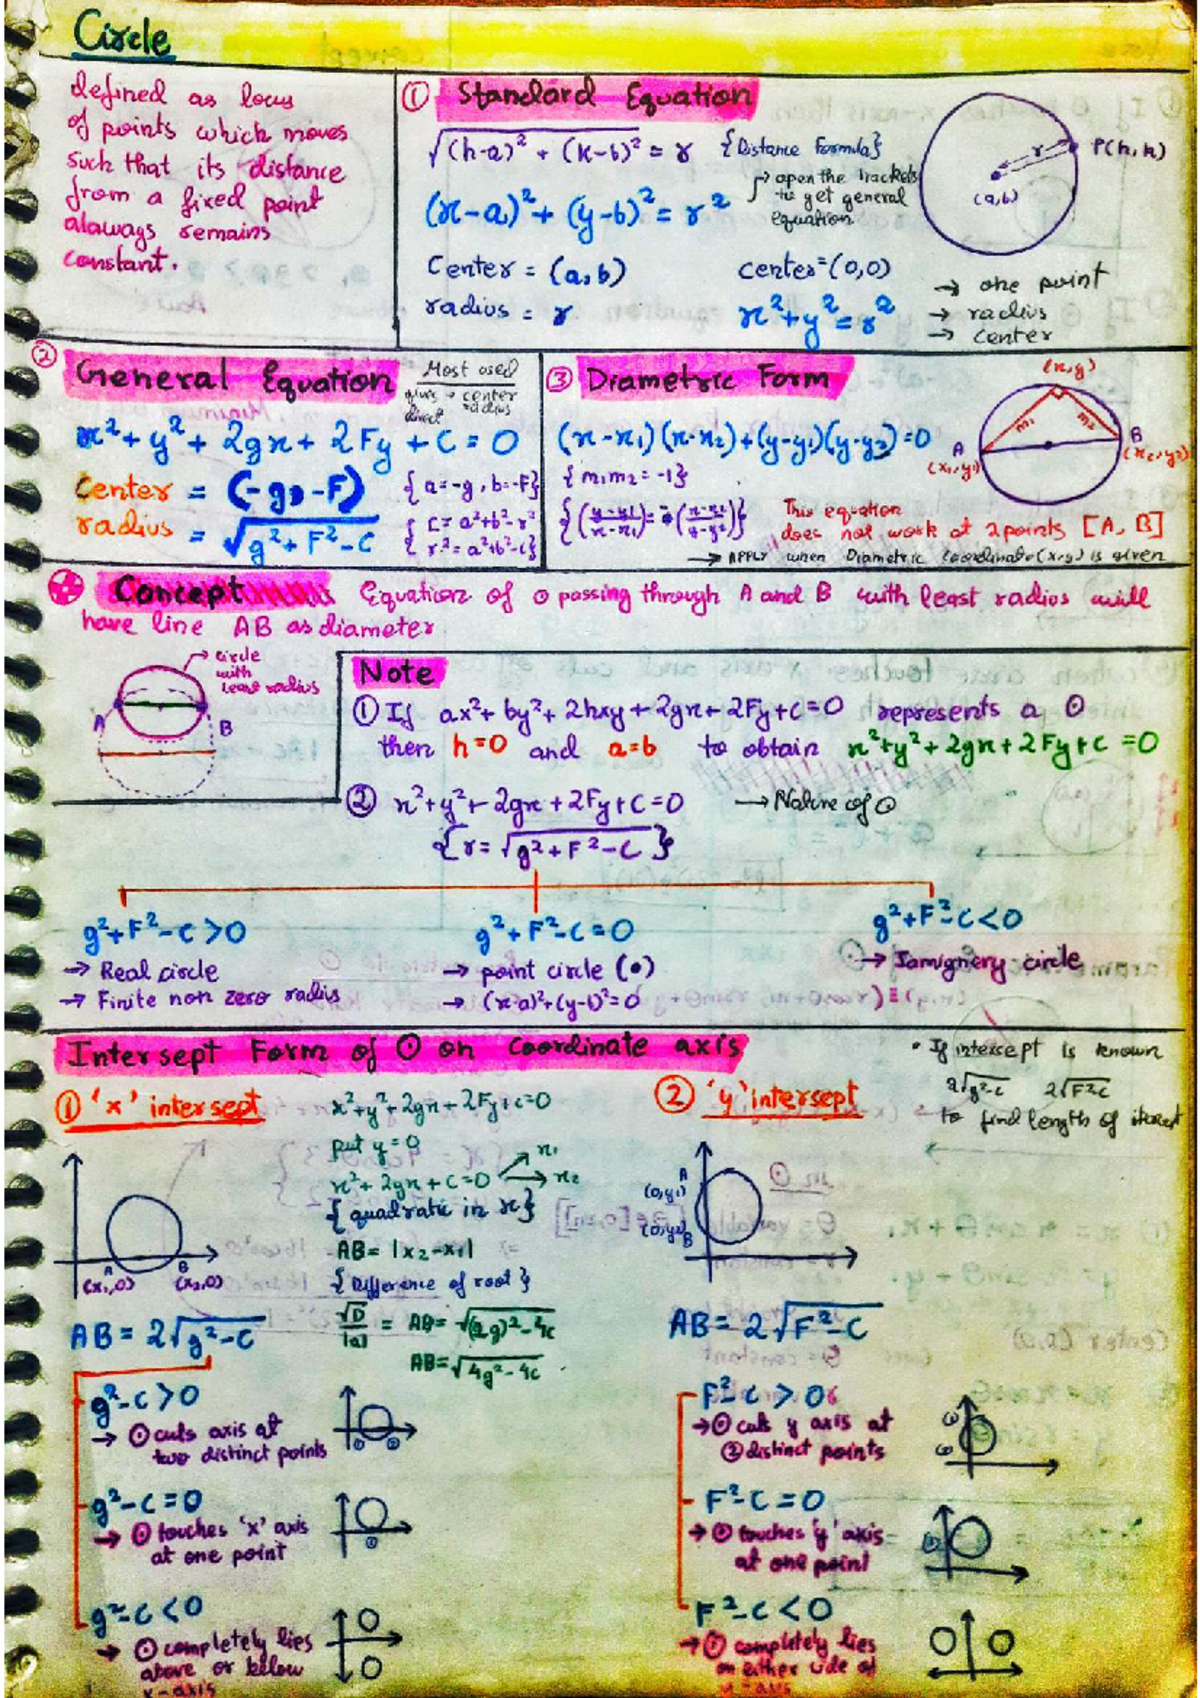 Circle
defined as locus
of points which moves
such that its distance
from a fixed point
alaways remains
constant.
① Standard Equation
√(h-a)² + (k-b)² = r {Distance Formula}
→ open the brackets
to get general
equation
(x-a)² + (y-b)² = r²
Center = (a,b)
radius = r
center = (0,0)
x²+y² = r²
→ one point
→ radius
→ center
P(h,k)
r
(a,b)
② General Equation
Most used
gives → center
direct radius
x²+y²+2gx+2Fy+C=0
Center = (-g, -F)
radius = √g²+F²-C
{a=-g, b=-F}
{C=a²+b²-r²
{r²=a²+b²-c}
③ Diametric Form
(x-x₁)(x-x₂)+(y-y₁)(y-y₂)=0
{m₁m₂=-1}
{(y-y₁/x-x₁)=-(x-x₂/y-y₂)}
This equation
does not work at 2points [A, B]
→ APPLY when Diametric Coordinate(x,y) is given
(x,y)
m₁ m₂
A
(x₁,y₁)
B
(x₂,y₂)
Concept Equation of ⊙ passing through A and B with least radius will
have line AB as diameter
→ circle
with
least radius
A B
Note
① If ax²+by²+2hxy+2gx+2Fy+C=0 represents a ⊙
then h=0 and a=b to obtain x²+y²+2gx+2Fy+C=0
② x²+y²+2gx+2Fy+C=0 → Nature of ⊙
{r=√g²+F²-C}
g²+F²-C>0
→ Real circle
→ Finite non zero radius
g²+F²-C=0
→ point circle (•)
→ (x-a)²+(y-b)²=0
g²+F²-C<0
→ Iamignery circle
Intersept Form of ⊙ on Coordinate axis
• If intersept is known
2√g²-c 2√F²-c
to find length of
① 'x' intersept
x²+y²+2gx+2Fy+c=0
put y=0
x²+2gx+C=0 x₁
x₂
{quadratic in x}
AB= |x₂-x₁|
{Difference of root}
√D/|a| = AB= √(2g)²-4c
AB=√4g²-4c
A B
(x₁,0) (x₂,0)
AB = 2√g²-C
g²-C>0
→ ⊙ cuts axis at
two distinct points
① ②
g²-C=0
→ ⊙ touches 'x' axis
at one point
①
g²-C<0
→ ⊙ completely lies
above or below
x-axis
② 'y' intersept
A
(0,y₁)
(0,y₂)
B
AB = 2√F²-C
F²-C>0
→ ⊙ cuts y axis at
② distinct points
F²-C=0
→ ⊙ touches 'y' axis
at one point
F²-C<0
→ ⊙ completely lies
on either side of
y-axis